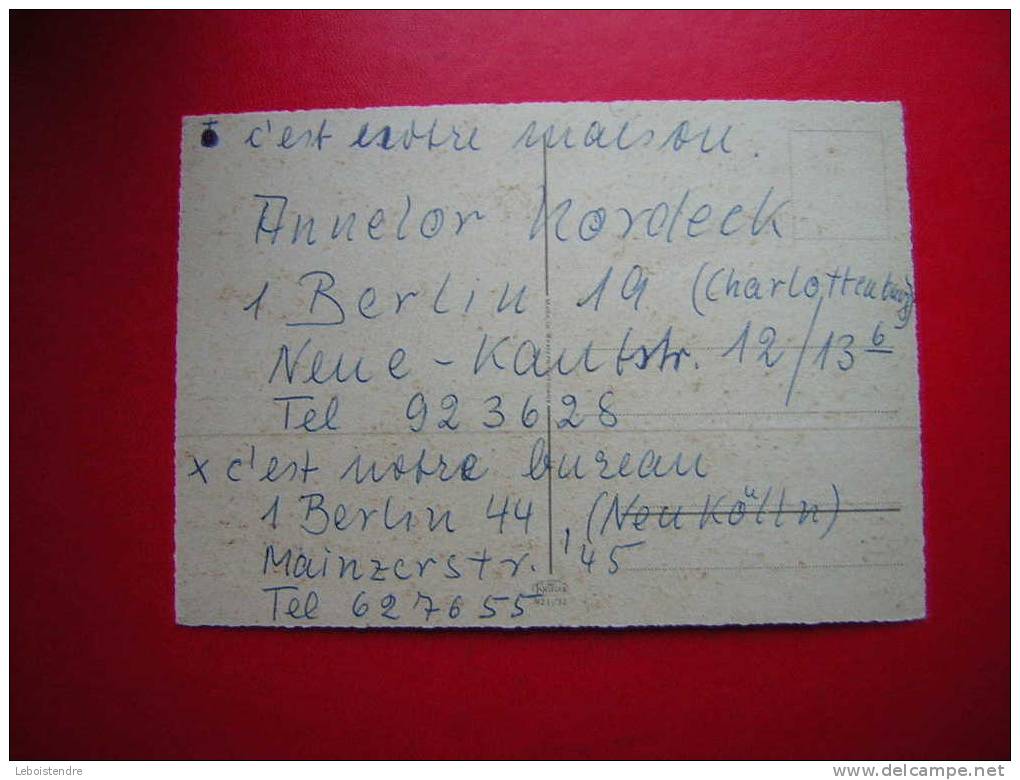 + c'est notre maison.
Annelor Nordeck
1 Berlin 19 (Charlottenburg)
Neue-Kantstr. 12/13 b
Tel 923628
x c'est notre bureau
1 Berlin 44, (Neukölln)
Mainzerstr. 45
Tel 627655
Leboistendre
www.delcampe.net